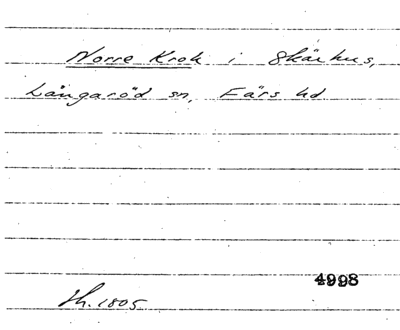 Norre Krok i Skärhus,
Långaröd sn, Färs hd
4998
Sk. 1805